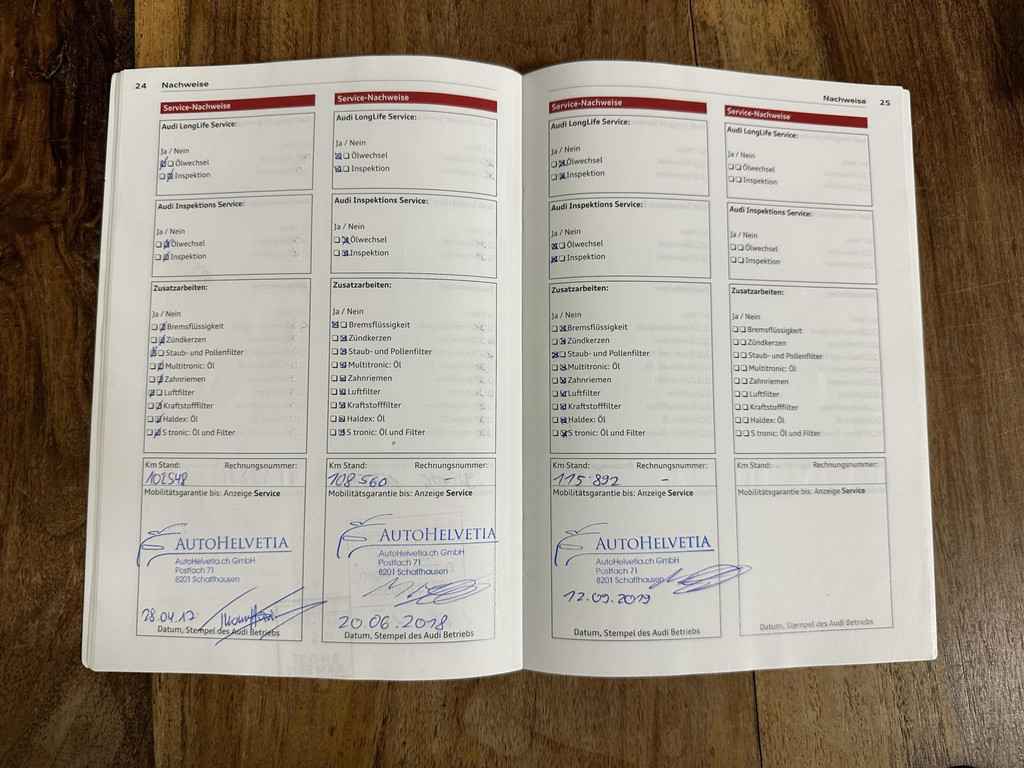 24 Nachweise
Service-Nachweise
Audi LongLife Service:
Ja / Nein
Ölwechsel
Inspektion
Audi Inspektions Service:
Ja / Nein
Ölwechsel
Inspektion
Zusatzarbeiten:
Ja / Nein
Bremsflüssigkeit
Zündkerzen
Staub- und Pollenfilter
Multitronic: Öl
Zahnriemen
Luftfilter
Kraftstofffilter
Haldex: Öl
S tronic: Öl und Filter
Km Stand: Rechnungsnummer:
102548
Mobilitätsgarantie bis: Anzeige Service
AUTOHELVETIA
AutoHelvetia.ch GmbH
Postfach 71
8201 Schaffhausen
28.04.17
Datum, Stempel des Audi Betriebs
Service-Nachweise
Audi LongLife Service:
Ja / Nein
Ölwechsel
Inspektion
Audi Inspektions Service:
Ja / Nein
Ölwechsel
Inspektion
Zusatzarbeiten:
Ja / Nein
Bremsflüssigkeit
Zündkerzen
Staub- und Pollenfilter
Multitronic: Öl
Zahnriemen
Luftfilter
Kraftstofffilter
Haldex: Öl
S tronic: Öl und Filter
Km Stand: Rechnungsnummer:
108.560 -
Mobilitätsgarantie bis: Anzeige Service
AUTOHELVETIA
AutoHelvetia.ch GmbH
Postfach 71
8201 Schaffhausen
20.06.2018
Datum, Stempel des Audi Betriebs
Nachweise 25
Service-Nachweise
Audi LongLife Service:
Ja / Nein
Ölwechsel
Inspektion
Audi Inspektions Service:
Ja / Nein
Ölwechsel
Inspektion
Zusatzarbeiten:
Ja / Nein
Bremsflüssigkeit
Zündkerzen
Staub- und Pollenfilter
Multitronic: Öl
Zahnriemen
Luftfilter
Kraftstofffilter
Haldex: Öl
S tronic: Öl und Filter
Km Stand: Rechnungsnummer:
115.892 -
Mobilitätsgarantie bis: Anzeige Service
AUTOHELVETIA
AutoHelvetia.ch GmbH
Postfach 71
8201 Schaffhausen
12.09.2019
Datum, Stempel des Audi Betriebs
Service-Nachweise
Audi LongLife Service:
Ja / Nein
Ölwechsel
Inspektion
Audi Inspektions Service:
Ja / Nein
Ölwechsel
Inspektion
Zusatzarbeiten:
Ja / Nein
Bremsflüssigkeit
Zündkerzen
Staub- und Pollenfilter
Multitronic: Öl
Zahnriemen
Luftfilter
Kraftstofffilter
Haldex: Öl
S tronic: Öl und Filter
Km Stand: Rechnungsnummer:
Mobilitätsgarantie bis: Anzeige Service
Datum, Stempel des Audi Betriebs